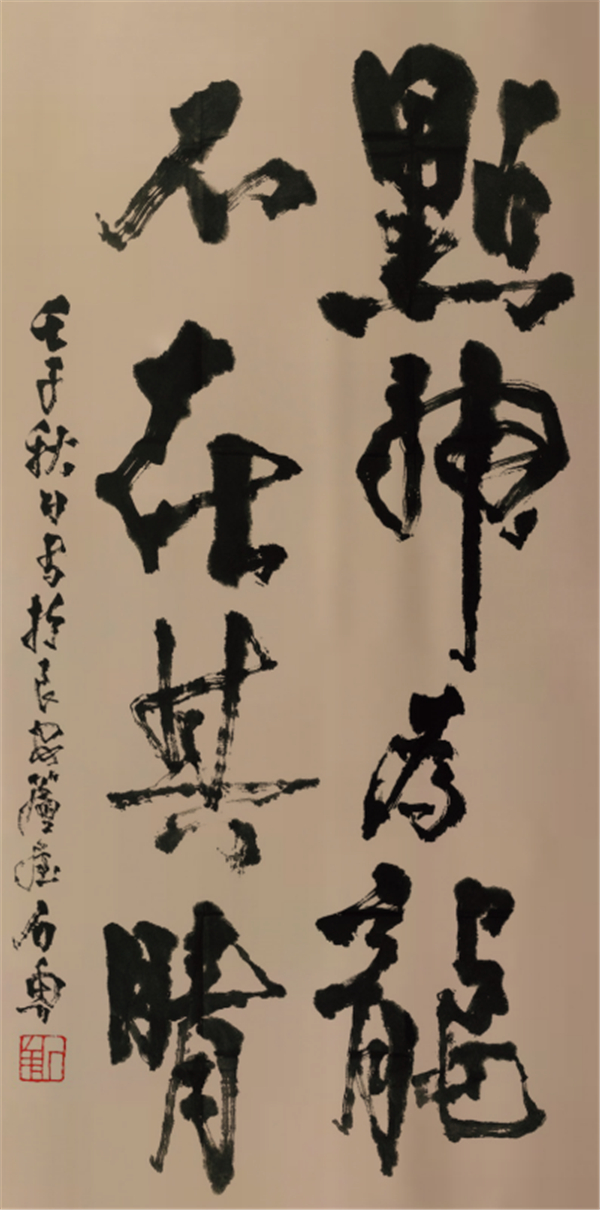 點為龍
不在其睛
壬子秋日書於長安石魯